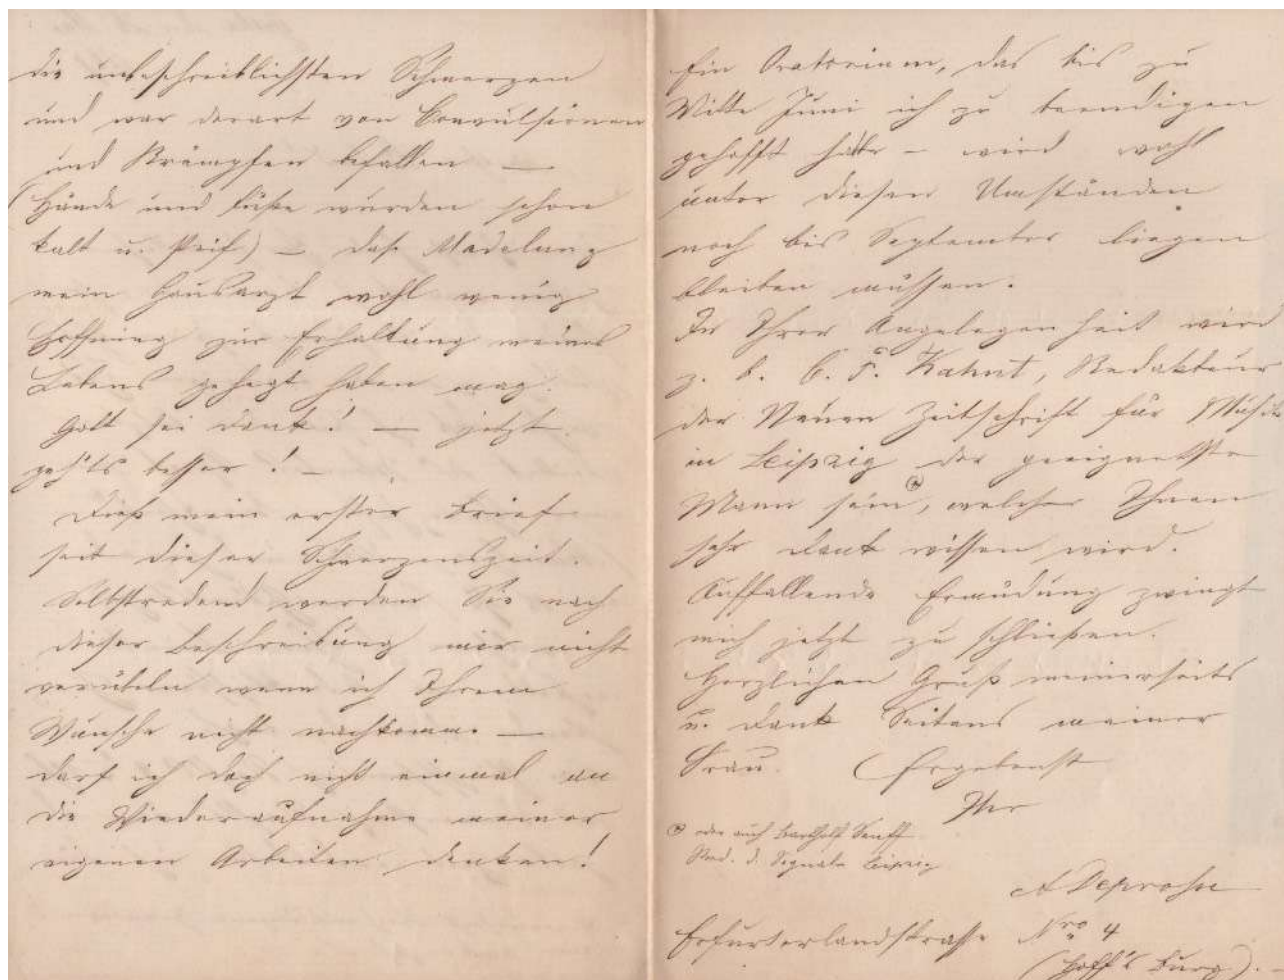 die unbeschreiblichsten Schmerzen
und war derart von Convulsionen
und Krämpfen befallen —
(Hände und Füße wurden schon
kalt u. steif) — daß Madelung
mein Hausarzt wohl wenig
Hoffnung zur Erhaltung meines
Lebens gehegt haben mag.
Gott sei Dank! — jetzt
geht's besser! —
Dieß mein erster Brief
seit dieser Schmerzenszeit.
Selbstredend werden Sie nach
dieser Beschreibung mir nicht
verübeln wenn ich Ihrem
Wunsche nicht nachkomme —
darf ich doch nicht einmal an
die Wiederaufnahme meiner
eigenen Arbeiten denken!
Ein Oratorium, das bis zu
Mitte Juni ich zu beendigen
gehofft hatte – wird wohl
unter diesen Umständen
noch bis September liegen
bleiben müssen.
In Ihrer Angelegenheit wird
z. B. C. F. Kahnt, Redakteur
der Neuen Zeitschrift für Musik
in Leipzig der geeignetste
Mann sein, welcher Ihnen
sehr Dank wissen wird.
Auffallende Ermüdung zwingt
mich jetzt zu schließen.
Herzlichen Gruß meinerseits
u. Dank Seitens meiner
Frau. Ergebenst
Ihr
oder auch Bartholf Senff
Red. d. Signale Leipzig
A Deprosse
Erfurterlandstrasse Nro 4
(Hoff's Burg).